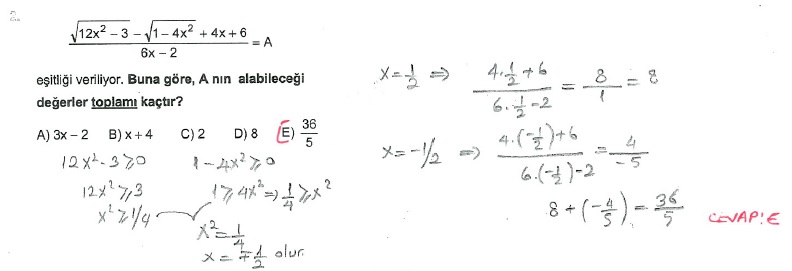 2.
√(12x² − 3) − √(1 − 4x²) + 4x + 6
6x − 2
= A
eşitliği veriliyor. Buna göre, A nın alabileceği
değerler toplamı kaçtır?
A) 3x − 2 B) x + 4 C) 2 D) 8 E) 36/5
12x² - 3 ⩾ 0 1 - 4x² ⩾ 0
12x² ⩾ 3 1 ⩾ 4x² ⇒ 1/4 ⩾ x²
x² ⩾ 1/4
x² = 1/4
x = ∓ 1/2 olur.
x = 1/2 ⇒ (4 · 1/2 + 6) / (6 · 1/2 - 2) = 8/1 = 8
x = -1/2 ⇒ (4 · (-1/2) + 6) / (6 · (-1/2) - 2) = 4/-5
8 + (-4/5) = 36/5
CEVAP: E